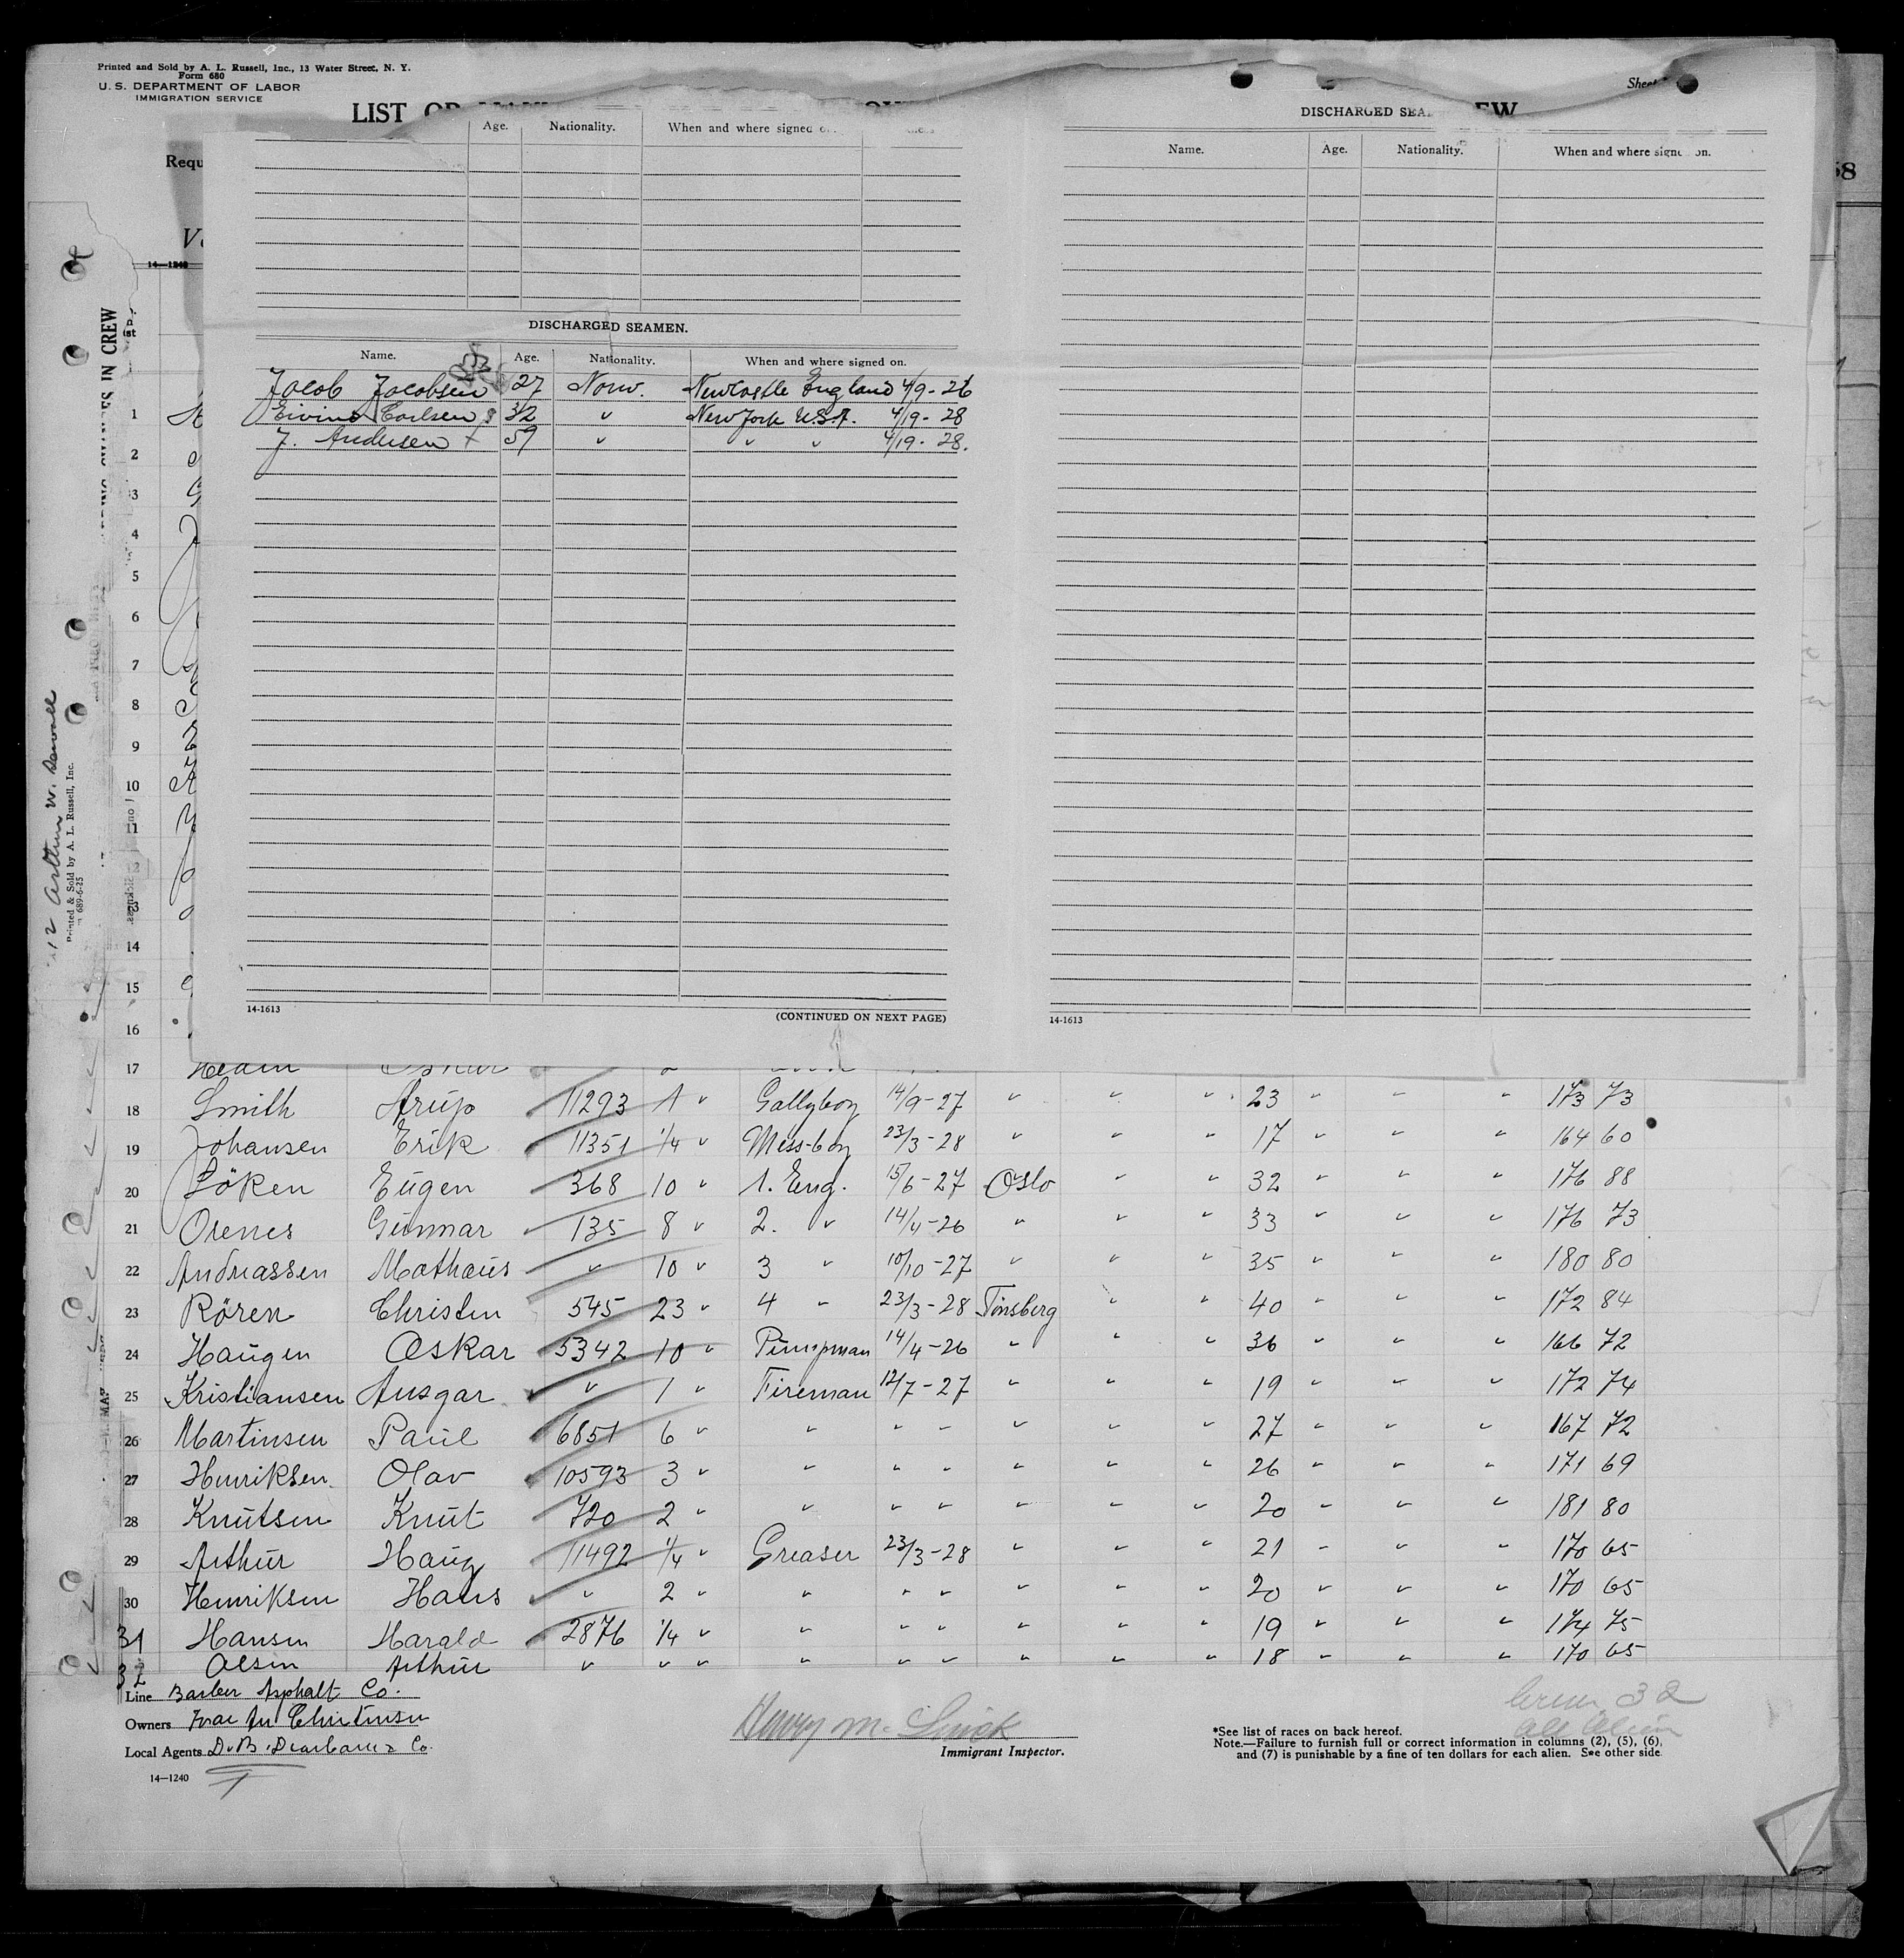 Printed and Sold by A. L. Russell, Inc., 13 Water Street, N. Y.
Form 680
U. S. DEPARTMENT OF LABOR
IMMIGRATION SERVICE
LIST
Sheet
Requ
14—1240
Age. Nationality. When and where signed
DISCHARGED SEAMEN.
Name. Age. Nationality. When and where signed on.
Jacob Jacobsen 27 Norw. Newcastle England 4/9-26
Eivind Carlsen 32 " New York U.S.A. 4/19-28
J. Andersen + 59 " " " 4/19-28.
14-1613
(CONTINUED ON NEXT PAGE)
DISCHARGED SEA EW
Name. Age. Nationality. When and where signed on.
14-1613
58
IN CREW
Arthur W. Sewall
Printed & Sold by A. L. Russell, Inc.
689-6-25
1
2
3
4
5
6
7
8
9
10
11
14
15
16
17
18 Smith Arup 11293 1 " Gallyboy 14/9-27 " " " 23 " " " 173 73
19 Johansen Erik 11351 1/4 " Mess-boy 23/3-28 " " " 17 " " " 164 60
20 Löken Eugen 368 10 " 1. Eng. 15/6-27 Oslo " " 32 " " " 176 88
21 Osenes Gunnar 135 8 " 2. " 14/4-26 " " " 33 " " " 176 73
22 Andreassen Mathaus " 10 " 3 " 10/10-27 " " " 35 " " " 180 80
23 Rören Christen 545 23 " 4 " 23/3-28 Tönsberg " " 40 " " " 172 84
24 Haugen Oskar 5342 10 " Pumpman 14/4-26 " " " 36 " " " 166 72
25 Kristiansen Ansgar " 1 " Fireman 12/7-27 " " " 19 " " " 172 74
26 Martinsen Paul 6851 6 " " " " " " " 27 " " " 167 72
27 Henriksen Olav 10593 3 " " " " " " " 26 " " " 171 69
28 Knutsen Knut 720 2 " " " " " " " 20 " " " 181 80
29 Arthur Haug 11492 1/4 " Greaser 23/3-28 " " " 21 " " " 170 65
30 Henriksen Hans " 2 " " " " " " " 20 " " " 170 65
31 Hansen Harald 2876 1/4 " " " " " " " 19 " " " 174 75
32 Olsen Arthur " " " " " " " " " 18 " " " 170 65
Line Barber Asphalt Co.
Owners Christensen
Local Agents D. B. Dearborn & Co.
14—1240
Henry M.
Immigrant Inspector.
Crew 32
All Alien
*See list of races on back hereof.
Note.—Failure to furnish full or correct information in columns (2), (5), (6),
and (7) is punishable by a fine of ten dollars for each alien. See other side